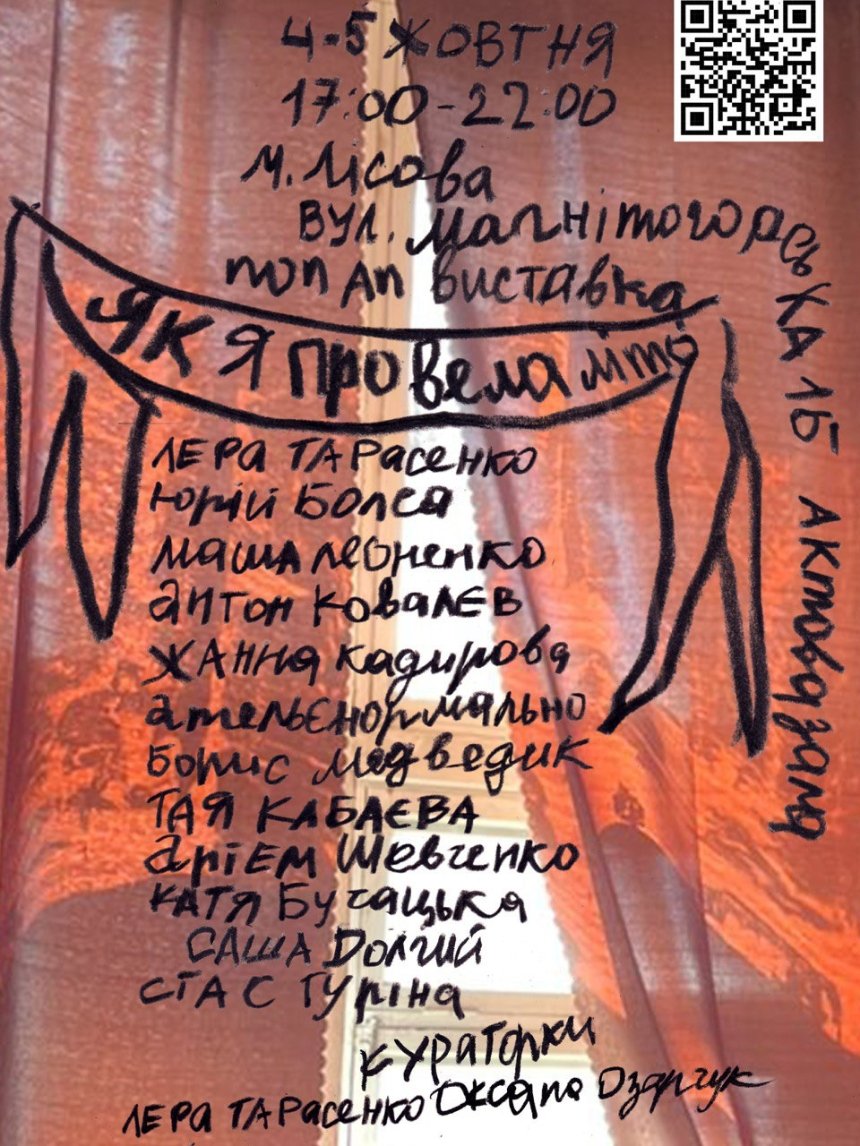 4-5 ЖОВТНЯ
17:00-22:00
М. Лісова
ВУЛ. Магнітогорська 15 Актова зала
поп ап виставка
ЯК Я провела літо
ЛЕРА ТАРасенко
Юрій Болса
маша леоненко
антон КовалЄв
ЖАННа Кадирова
ательєнормально
Борис Медведик
ТАЯ КАБАЄВА
арієм Шевченко
КАТЯ Бучацька
САША Долгий
СТАС ТУріна
кураторки
ЛЕРА ТАРасенко Оксана Озарчук